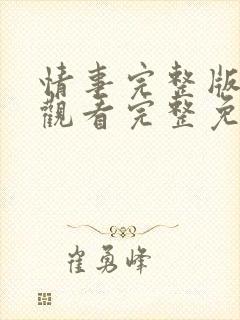 情事完整版
觀看完整免
崔勇峰